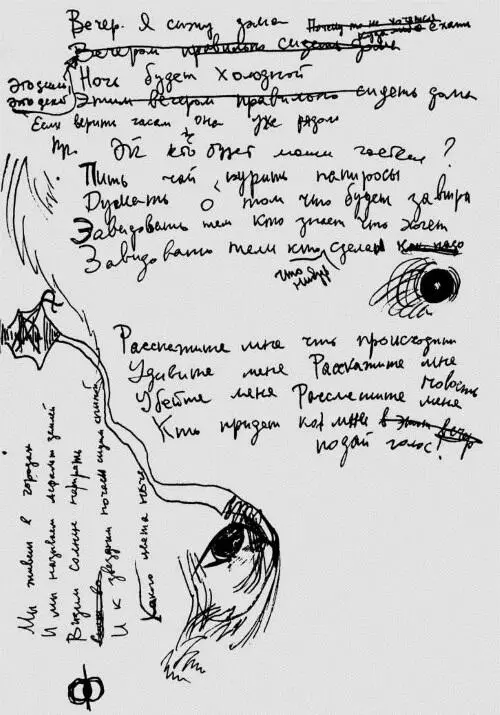 Вечер. Я сижу дома
Почему то не хочется
куда-то ехать
Вечером правильно сидеть дома
Ночь будет холодной
Это зима
Это декаб
Этим вечером правильно сидеть дома
Если верить часам она уже рядом
Пр. Эй кто будет моим гостем?
Пить чай курить папиросы
Думать о том что будет завтра
Завидовать тем кто знает что хочет
Завидовать тем кто сделал как надо
что нибудь
Расскажите мне что происходит
Удивите меня Расскажите мне новость
Убейте меня Рассмешите меня
Кто придет ко мне в этот вечер
подай голос!
Мы живем в городах
И мы называем асфальт землей
Видим солнце
И к звездам ночами
Какого цвета небо